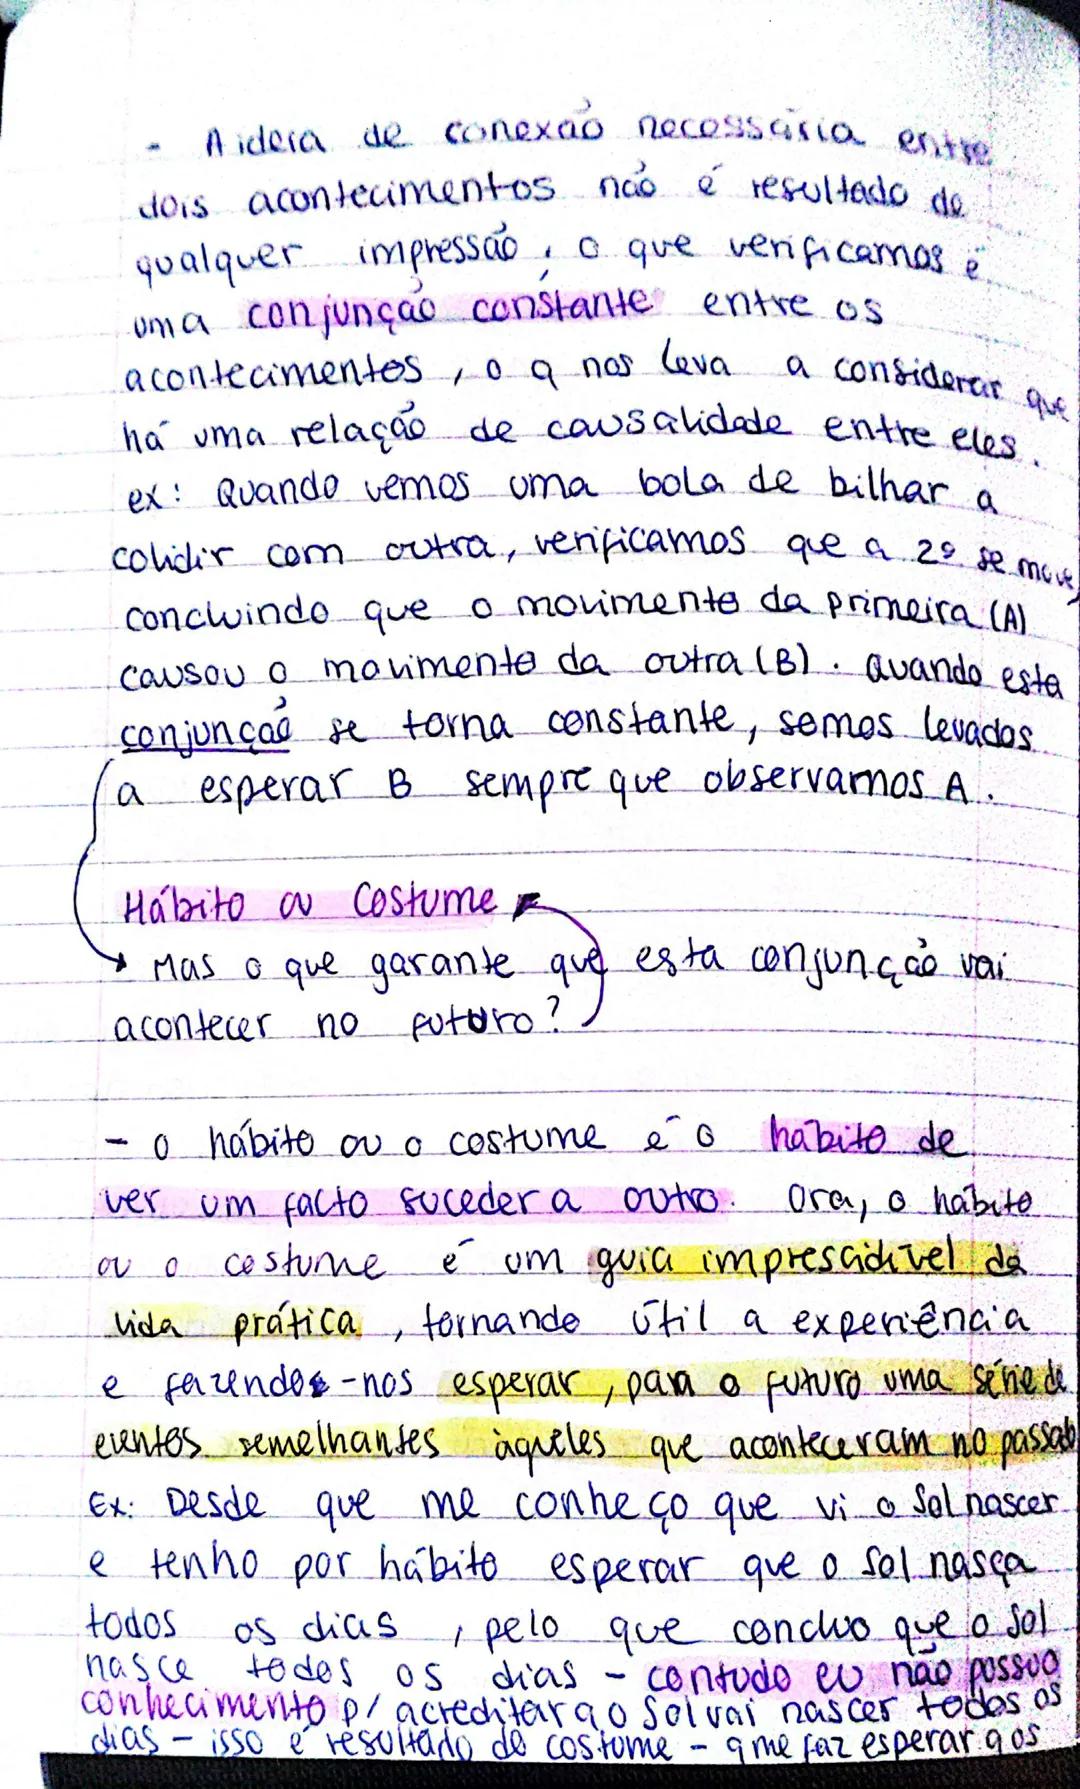 - A ideia de conexão necessária entre
dois acontecimentos não é resultado de
qualquer impressão, o que verificamos é
uma conjunção constante entre os
acontecimentos, o q nos leva a considerar que
há uma relação de causalidade entre eles.
ex: Quando vemos uma bola de bilhar a
colidir com outra, verificamos que a 2º se move,
concluindo que o movimento da primeira (A)
causou o movimento da outra (B). Quando esta
conjunção se torna constante, somos levados
a esperar B sempre que observamos A.
Hábito ou Costume
→ Mas o que garante que esta conjunção vai
acontecer no futuro?
- O hábito ou o costume é o hábito de
ver um facto suceder a outro. Ora, o hábito
ou o costume é um guia imprescidível da
vida prática, tornando útil a experiência
e fazendo-nos esperar, para o futuro uma série de
eventos semelhantes àqueles que aconteceram no passado
Ex: Desde que me conheço que vi o Sol nascer
e tenho por hábito esperar que o Sol nasça
todos os dias, pelo que concluo que o Sol
nasce todos os dias - contudo eu não possuo
conhecimento p/ acreditar q o Sol vai nascer todos os
dias - isso é resultado do costume - q me faz esperar q os